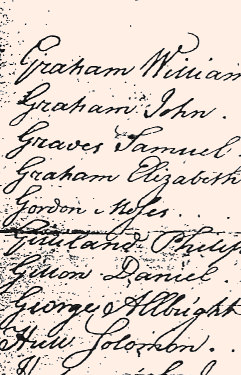 Graham William
Graham John .
Graves Samuel .
Graham Elizabeth
Gordon Moses . . .
Gilliland Philip
Daniel .
George Allbright
Solomon . .